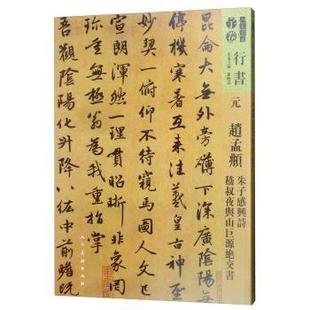 行書
元
趙孟頫
朱子感興詩
嵇叔夜與山巨源絕交書
昆侖大無外旁礴下深廣陰陽無
停機寒暑
神聖
妙契一俯仰不待窺馬圖人文已
宣朗渾然一理貫昭晰非象罔
珍重無極翁為我重指掌
吾觀陰陽化升降八紘中前瞻既